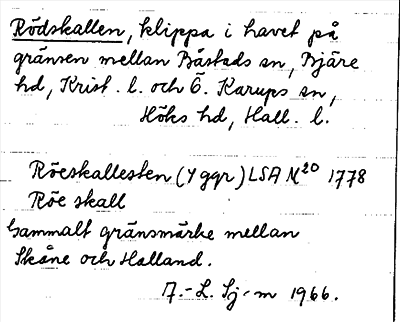 Rödskallen, klippa i havet på
gränsen mellan Båstads sn, Bjäre
hd, Krist. l. och Ö. Karups sn,
Höks hd, Hall. l.
Röeskallesten (4 ggr) LSA N20 1778
Röe skall
Gammalt gränsmärke mellan
Skåne och Halland.
A.-L. Sj-m 1966.